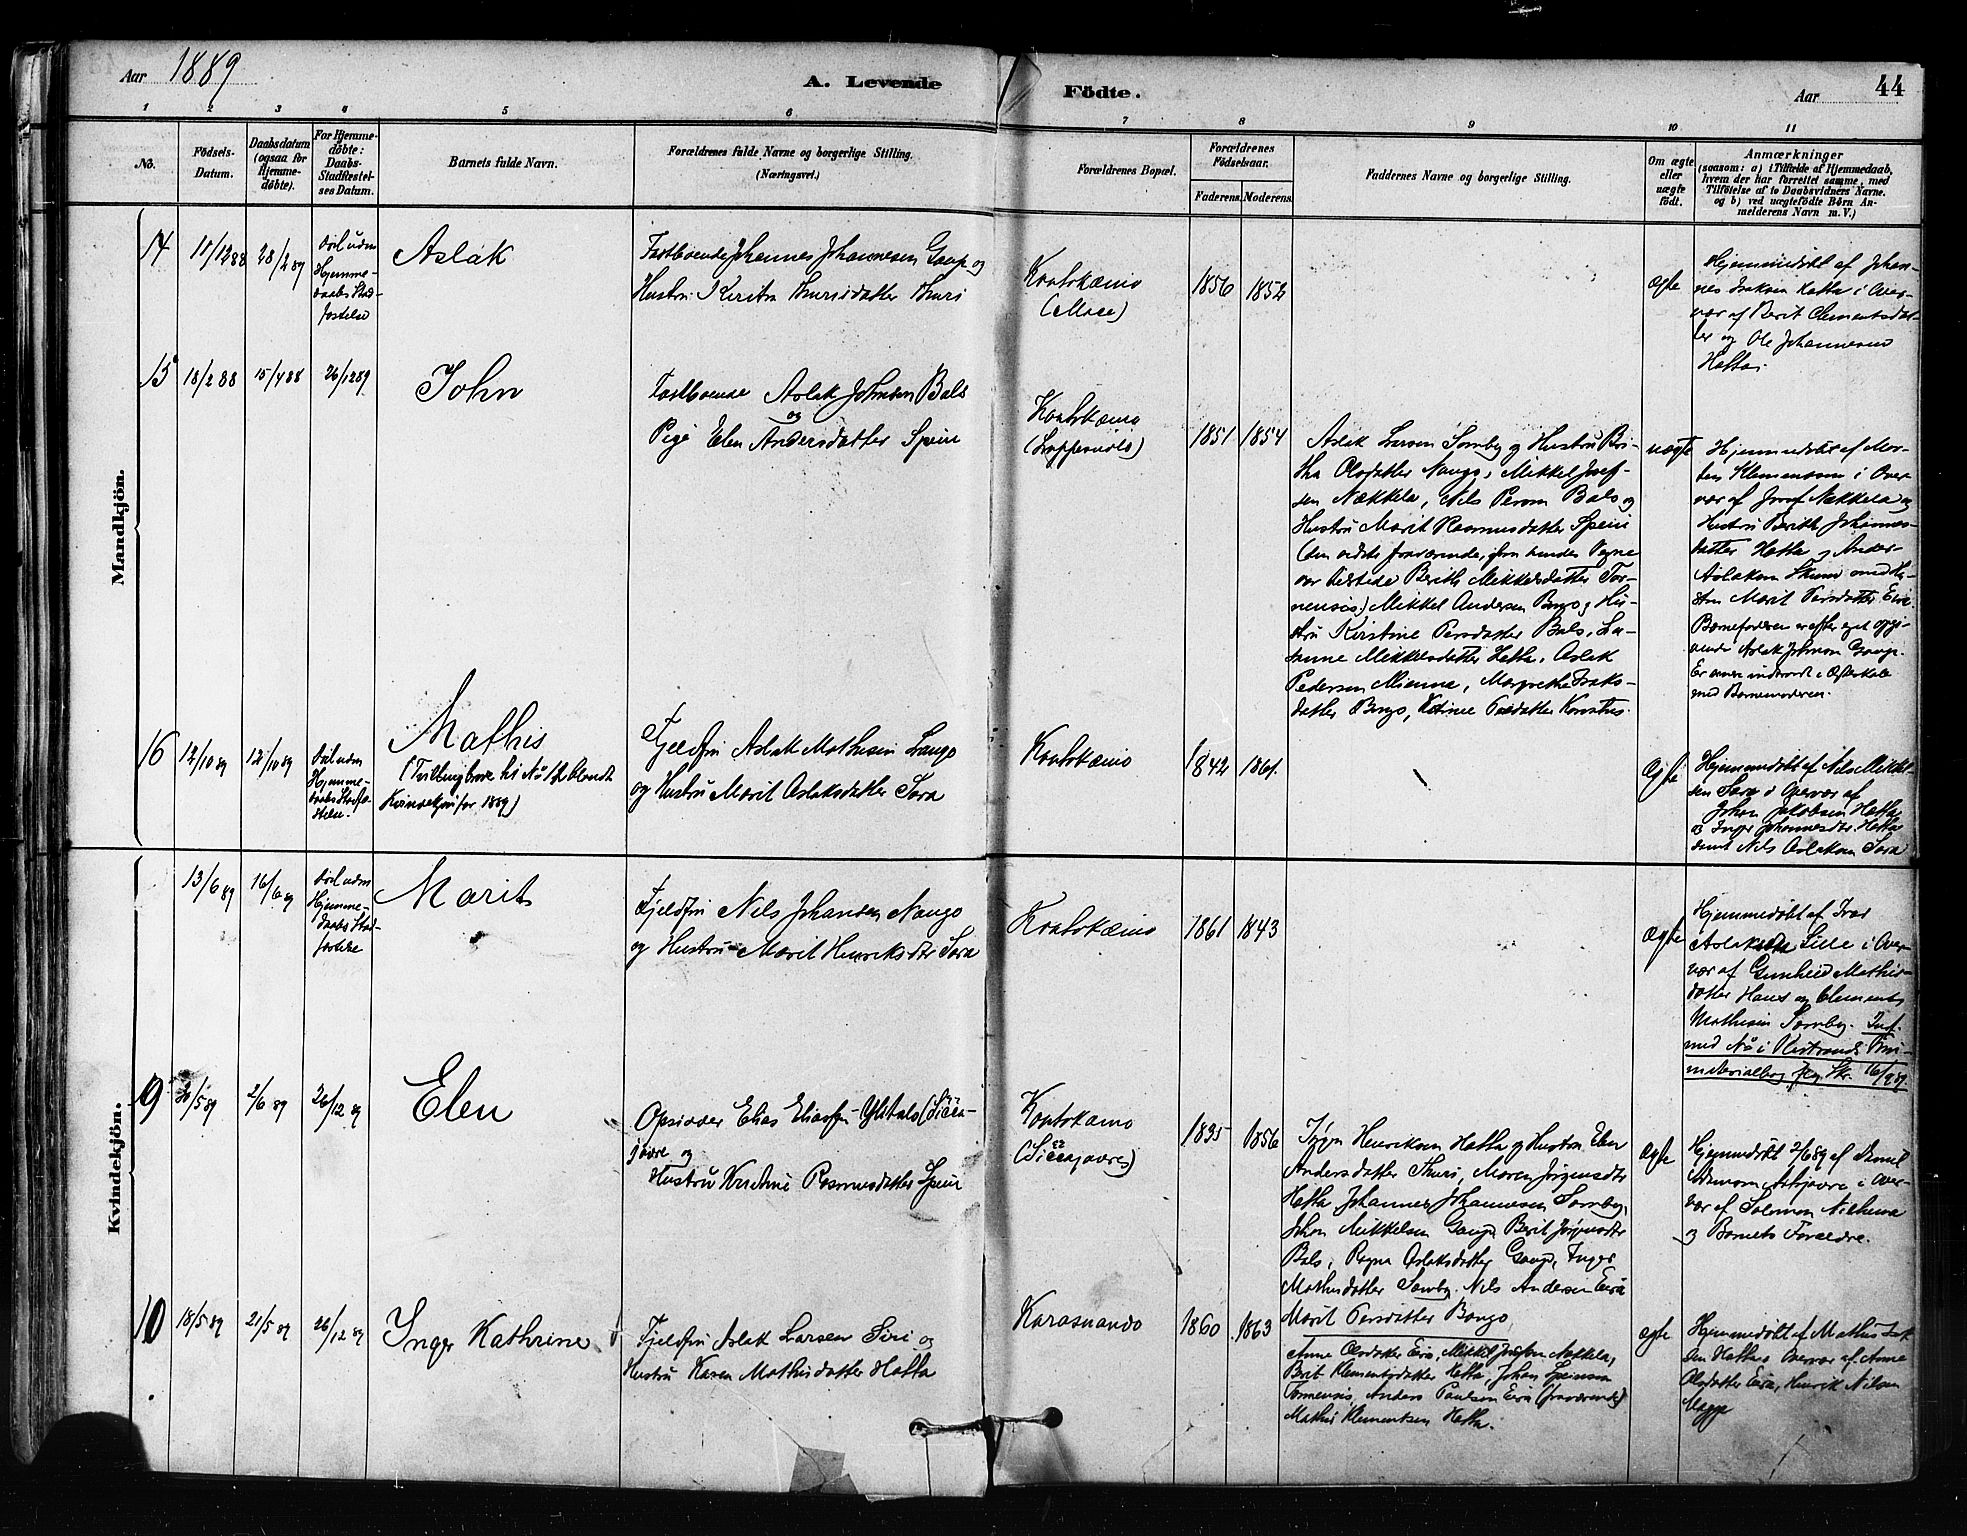 Aar 1889
A. Levende
Födte.
Aar
44
1 2 3 4 5 6 7 8 9 10 11
No.
Födsels-
Datum.
Daabsdatum
(ogsaa for
Hjemme-
döbte).
For Hjemme-
döbte:
Daabs-
Stadfæstel-
ses Datum.
Barnets fulde Navn.
Forældrenes fulde Navne og borgerlige Stilling.
(Næringsvei.)
Forældrenes Bopæl.
Forældrenes
Födselsaar.
Faderens.
Moderens.
Faddernes Navne og borgerlige Stilling.
Om ægte
eller
uægte
födt.
Anmærkninger
(saasom: a) i Tilfælde af Hjemmedaab,
hvem der har forrettet samme, med
Tilföielse af to Daabsvidners Navne.
og b) ved uægtefödte Börn An-
melderens Navn m. V.)
Mandkjön.
14
11/12 88
28/2 89
död uden
Hjemme-
daabs Stad-
fæstelse
Aslak
Fastboende Johannes Johannesen Gaup og
Hustru Kirsten Thurisdatter Thuri
Koutokæino
(Mace)
1856
1852
ægte
Hjemmedöbt af Johan-
nes Isaksen Hatta i Over-
vær af Berit Clementsdat-
ter og Ole Johannesen
Hatta.
15
18/2 88
15/4 88
26/12 89
John
Fastboende Aslak Johnsen Bals
og
Pige Elen Andersdatter Spein
Koutokæino
1851
1854
Aslak Larsen Somby og Hustru Bri-
tha Olsdatter Nango, Mikkel Josef-
sen Nækkela, Nils Persen Bals og
Hustru Marit Rasmusdatter Spein
(den sidste fraværende, for hendes Vegne
var tilstede Berith Mikkelsdatter Tor-
nensis) Mikkel Andersen Bongo og Hu-
stru Kirstine Persdatter Bals, Su-
sanne Mikkelsdatter Hetta, Aslak
Pedersen Mienna, Margrethe Isaks-
datter Bongo,
uægte
Hjemmedöbt af Mor-
ten Klemensen i Over-
vær af Josef Nækkela og
Hustru Berith Johannes-
datter Hetta og Anders
Aslaksen Skum med Hu-
stru Marit Persdatter Eira.
Barnefaderen er efter eget opgi-
vende Aslak Johnsen Gaup.
Er senere indtraadt i Ægteskab
med Barnemoderen.
16
12/10 89
12/10 89
död uden
Hjemme-
daabs Stadfæ-
stelse.
Mathis
(Tvillingbroder til No 12 blandt
Kvindekjön for 1889)
Fjeldfin Aslak Mathisen Lango
og Hustru Marit Aslaksdatter Sara
Koutokæino
1842
1861.
Ægte
Hjemmedöbt af Nils Mikkel-
sen Sara i Overvær af
Johan Jakobsen Hætta
og Inger Johannesdtr Hætta
samt Nils Aslaksen Sara
Kvindekjön.
13/6 89
16/6 89
död uden
Hjemme-
daabs Stad-
fæstelse
Marit
Fjeldfin Nils Johansen Nango
og Hustru Marit Henriksdtr Sara
Koutokæino
1861
1843
Ægte
Hjemmedöbt af Ivar
Aslaksen Lille i Over-
vær af Gunhild Mathis-
datter Hans og Clement
Mathisen Somby. Indf.
med No i Kistrands Mini-
sterialbog
9
2/6 89
26/12 89
Elen
Opsidder Elias Eliassen Ylitalo (Siccea-
javre og
Hustru Kristine Rasmusdatter Spein
Koutokæino
(Siccajavre)
1835
1856
Jögen Henriksen Hætta og Hustru Elen
Andersdatter Thuri, Maren Jörgensdtr
Hetta Johannes Johannesen Somby,
Johan Mikkelsen Gaup, Berit Jörgensdtr
Bals, Ragna Aslaksdatter Gaup, Inger
Mathisdatter Somby. Nils Andersen Eira
Marit Persdatter Bongo,
ægte
Hjemmedöbt 2/6 89 af Daniel
i Over-
vær af Salomon
og Barnets Forældre.
10
18/5 89
21/5 89
26/12 89
Inger Kathrine
Fjeldfin Aslak Larsen Siri og
Hustru Karen Mathisdatter Hatta
Karasuando
1860
1863
Anne Olsdatter Eira, Mikkel Josefsen Nækkela,
Brit Klementsdatter Hetta, Johan Speinsen
Tornensis, Anders Paulsen Eira (fraværende)
Mathis Klementsen Hetta.
ægte
Hjemmedöbt af Mathis Isak-
sen Hatta i Overvær af Anne
Olsdatter Eira, Henrik Nilsen
Magga